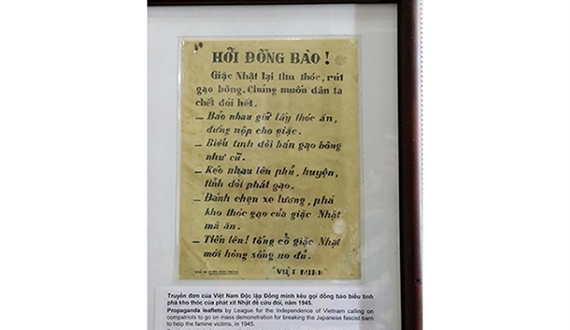 HỠI ĐỒNG BÀO !
Giặc Nhật lại thu thóc, rút
gạo bông. Chúng muốn dân ta
chết đói hết.
— Bảo nhau giữ lấy thóc ăn,
đừng nộp cho giặc.
— Biểu tình đòi bán gạo bông
như cũ.
— Kéo nhau lên phủ, huyện,
tỉnh đòi phát gạo.
— Đánh chẹn xe lương, phá
kho thóc gạo của giặc Nhật
mà ăn.
— Tiến lên! tống cổ giặc Nhật
mới hòng sống no đủ.
"VIỆT MINH"
Truyền đơn của Việt Nam Độc lập Đồng minh kêu gọi đồng bào biểu tình
phá kho thóc của phát xít Nhật để cứu đói, năm 1945.
Propaganda leaflets by League for the Independence of Vietnam calling on
compatriots to go on mass demonstration for breaking the Japanese fascist barn
to help the famine victims, in 1945.